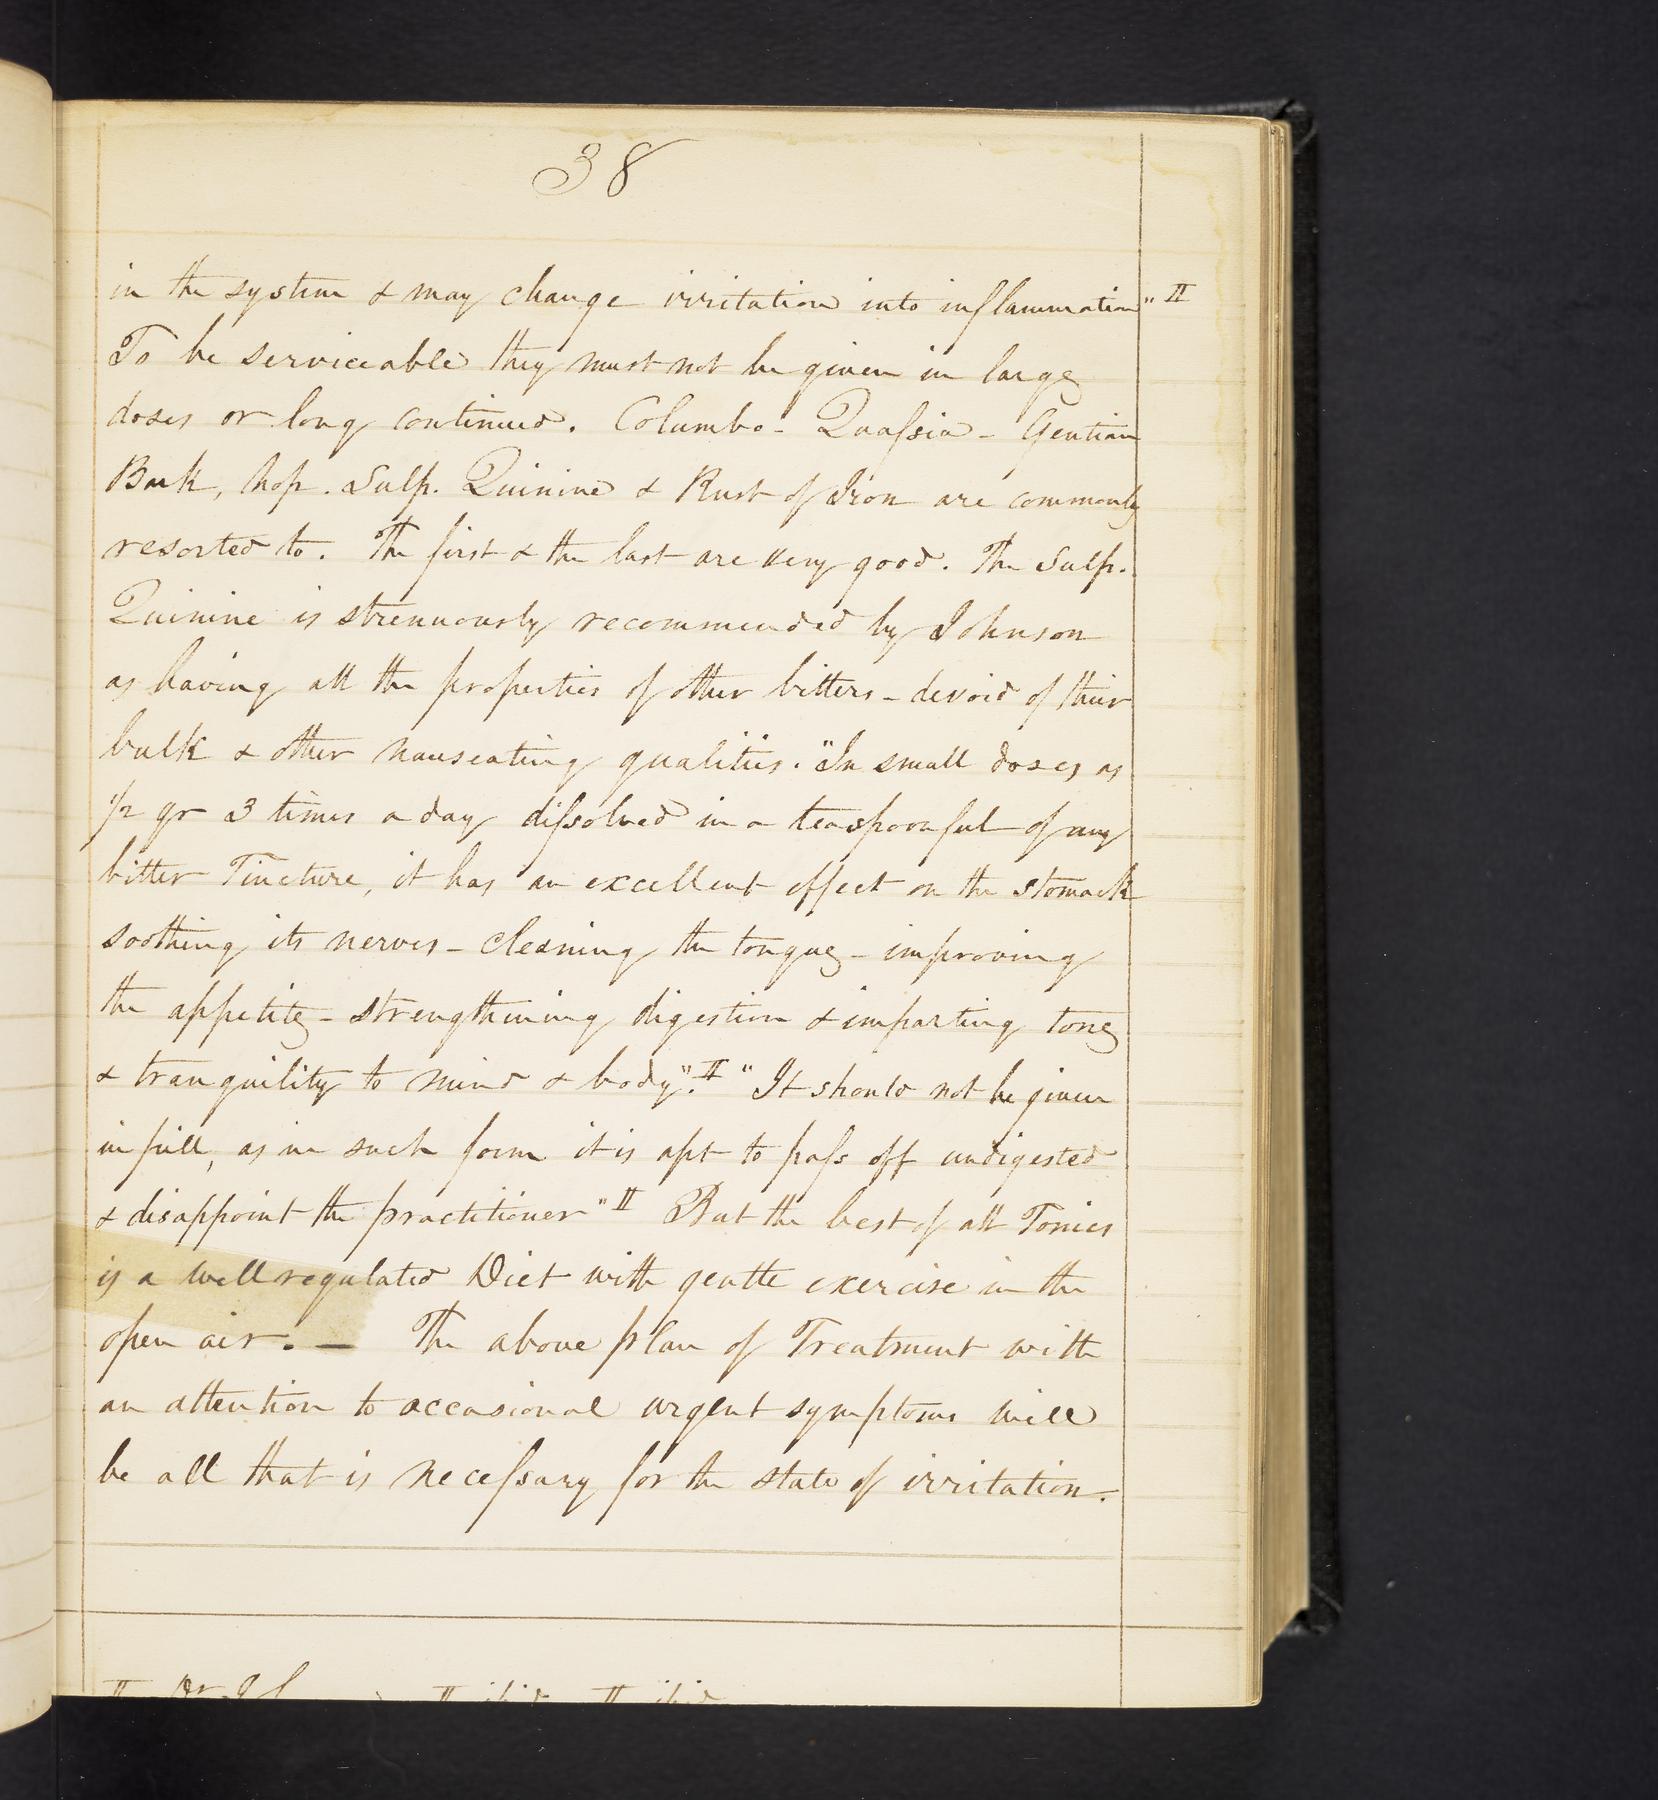 38
in the system & may change irritation into inflammation" II
To be serviceable they must not be given in large
doses or long continued. Columbo - Quaſsia - Gentian
Bark, hop. Sulp. Quinine & Rust of Iron are commonly
resorted to. The first & the last are very good. The Sulp.
Quinine is strenuously recommended by Johnson
as having all the properties of other bitters - devoid of their
bulk & other nauseating qualities. "In small doses as
1/2 gr 3 times a day diſsolved in a teaspoonful of any
bitter Tincture, it has an excellent effect on the stomach
soothing its nerves - cleaning the tongue - improving
the appetite - strengthening digestion & imparting tone
& tranquility to mind & body". II "It should not be given
in pill, as in such form it is apt to paſs off undigested
& disappoint the practitioner" II But the best of all Tonics
is a well regulated Diet with gentle exercise in the
open air. — The above plan of Treatment with
an attention to occasional urgent symptoms will
be all that is neceſsary for the state of irritation.
II Dr II ibid II ibid